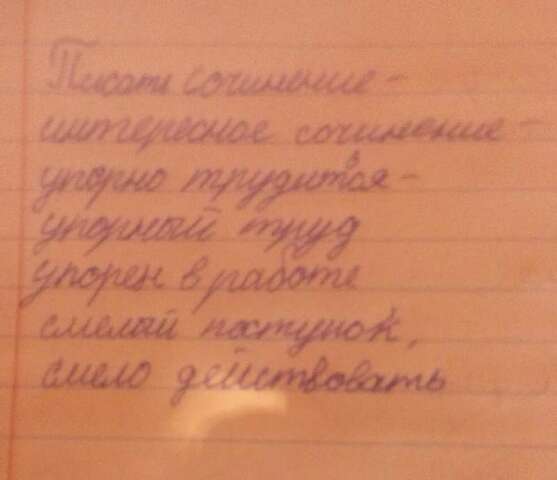 Писать сочинение -
интересное сочинение -
упорно трудится -
упорный труд
упорен в работе
смелый поступок,
смело действовать